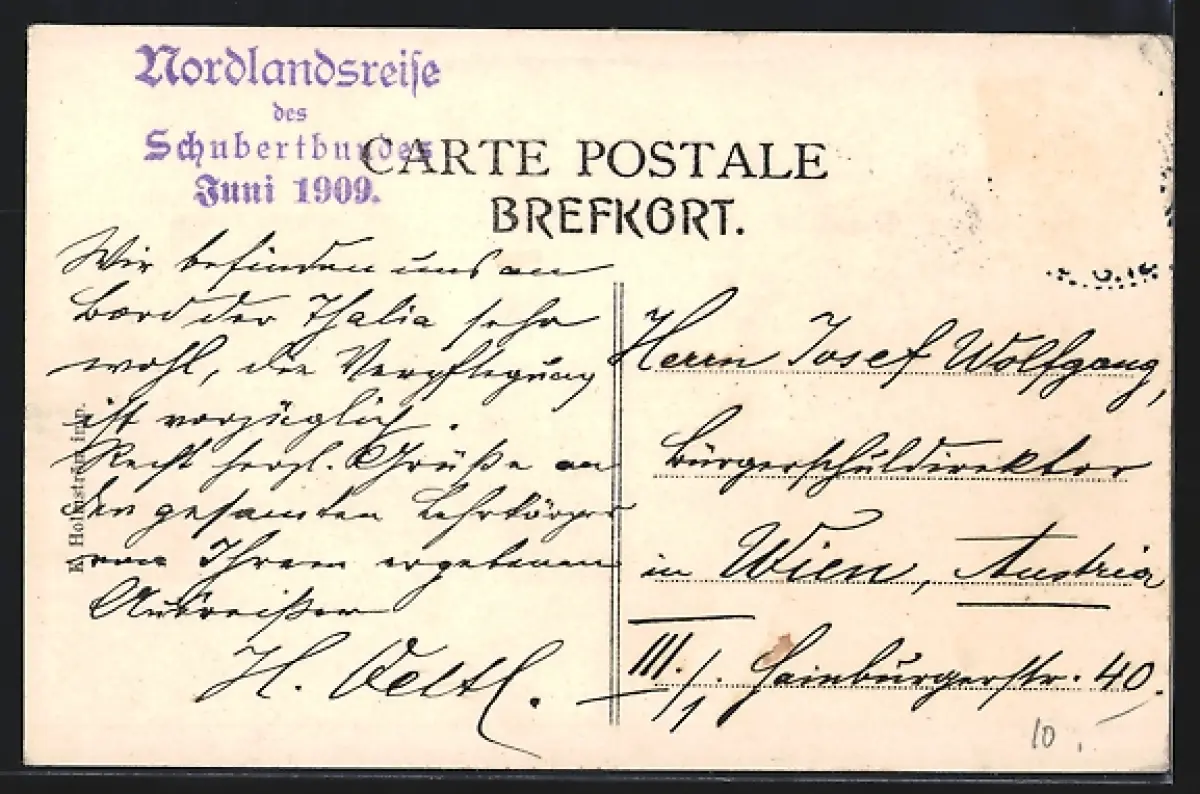 Nordlandsreise
des
Schubertbundes
Juni 1909.
CARTE POSTALE
BREFKORT.
Wir befinden uns an
Bord der Thalia sehr
wohl, die Verpflegung
ist vorzüglich.
Recht herzl. Grüße an
den gesamten Lehrkörper
von Ihrem ergebenen
Ausreißer
H. Oeltl.
Herrn Josef Wolfgang,
Bürgerschuldirektor
in Wien, Austria
III./1. Hainburgerstr. 40.
10.